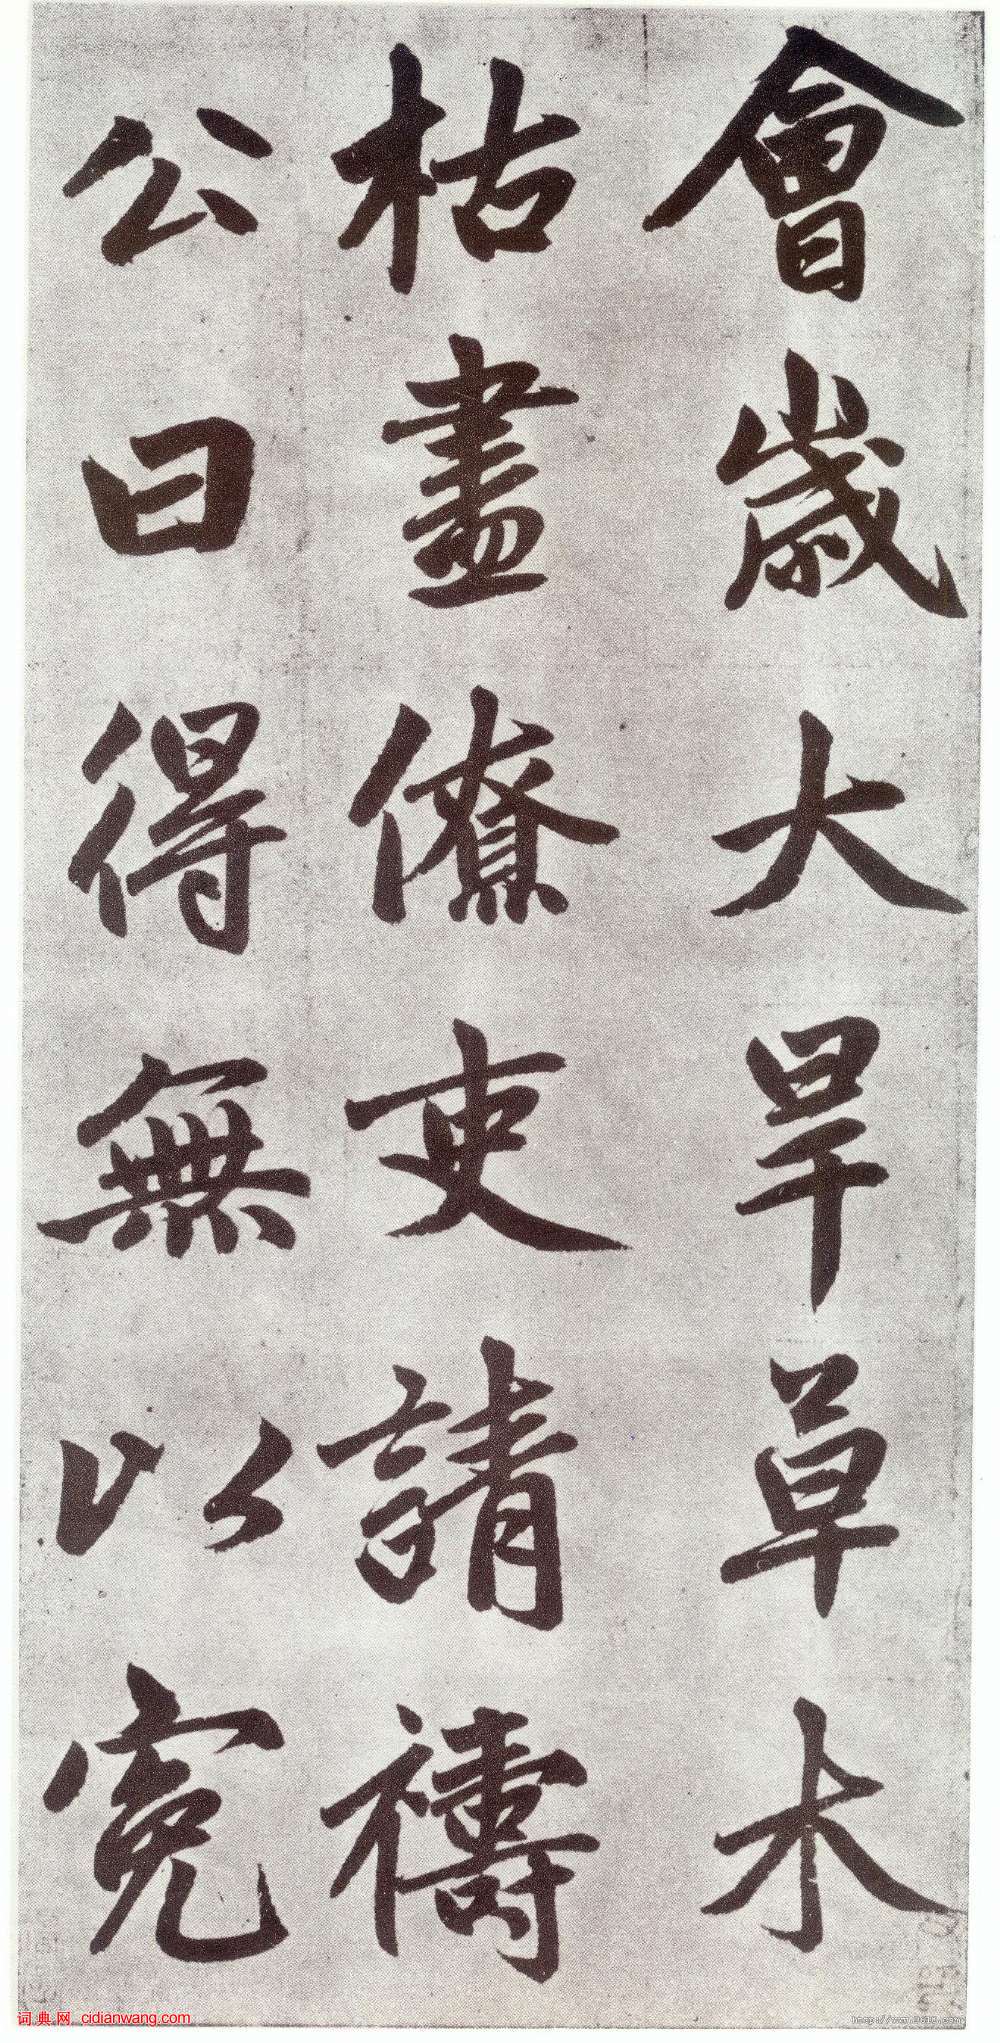 會歲大旱草木
枯盡僚吏請禱
公曰得無以寃
词典网 cidianwang.com
http://www.9610.com